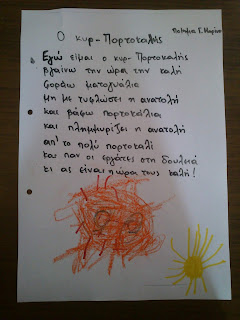 Ο κυρ-Πορτοκαλής
Εγώ είμαι ο κυρ-Πορτοκαλής
βγαίνω την ώρα την καλή
φοράω ματογυάλια
μη με τυφλώσει η ανατολή
και βάφω πορτοκάλια
και πλημμυρίζει η ανατολή
απ' το πολύ πορτοκαλί
και παν οι εργάτες στη δουλειά
κι ας είναι η ώρα τους καλή!